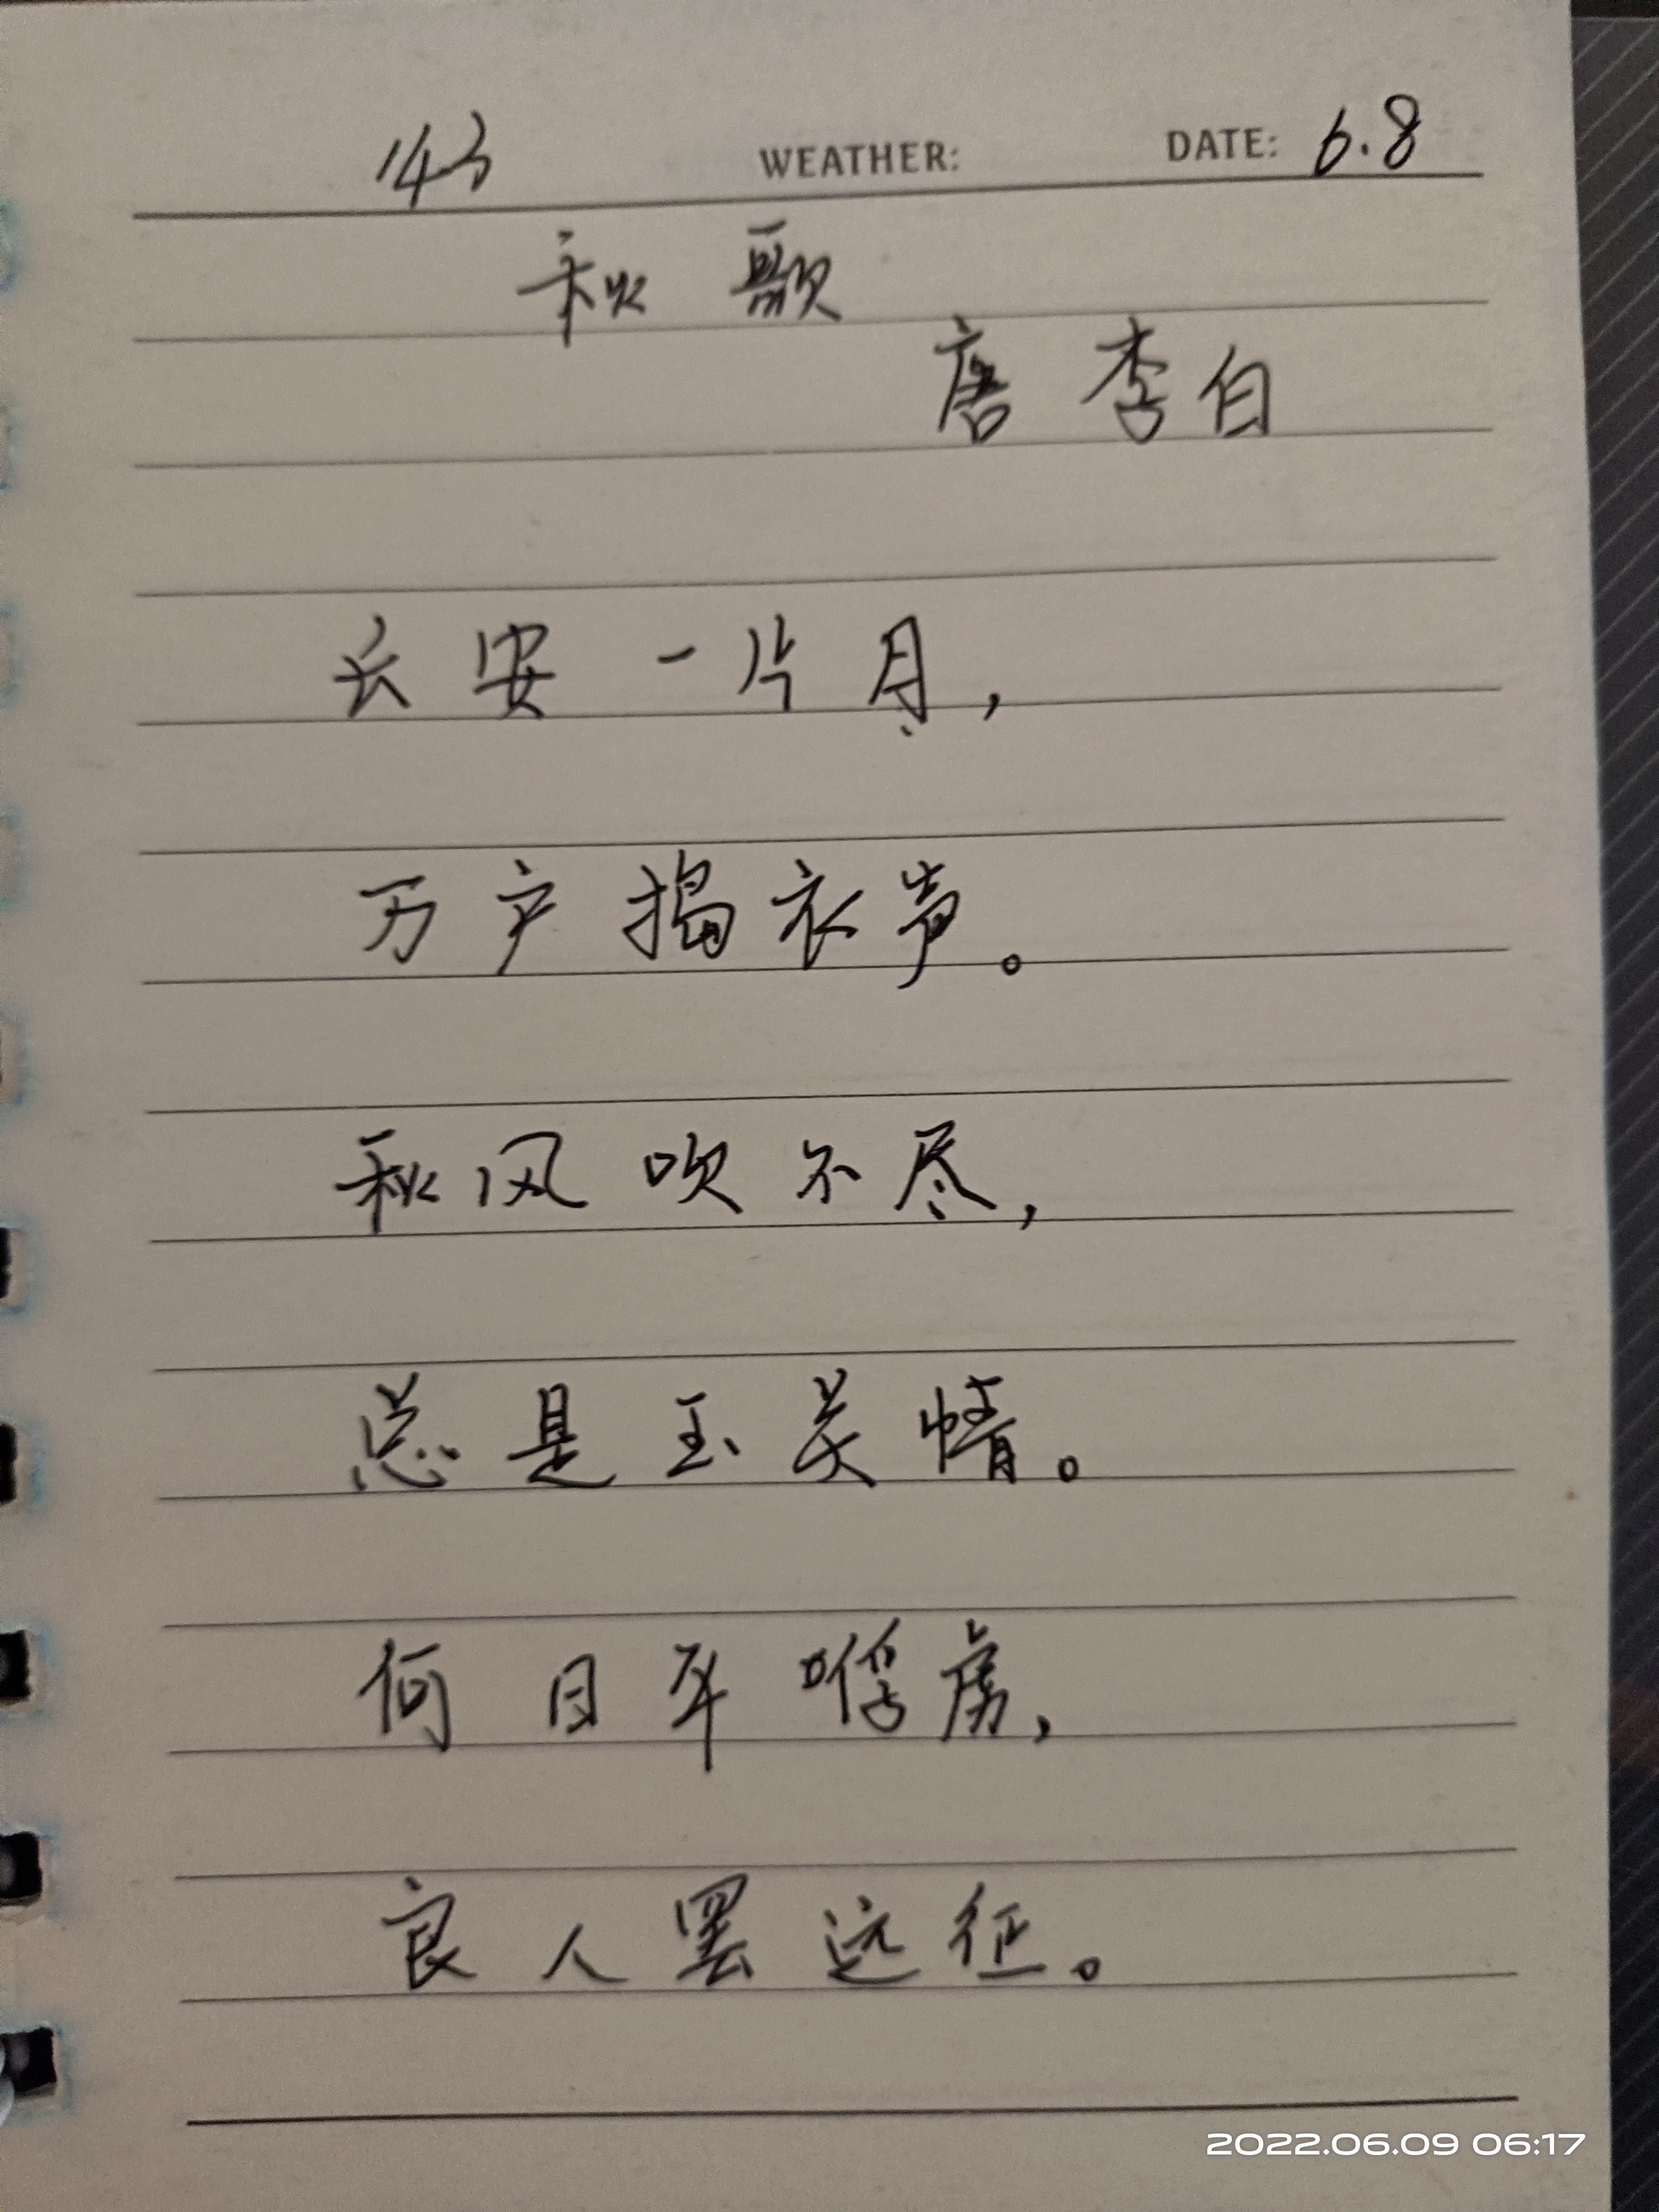 143 WEATHER: DATE: 6.8
秋歌
唐 李白
长安一片月，
万户捣衣声。
秋风吹不尽，
总是玉关情。
何日平虏，
良人罢远征。
2022.06.09 06:17